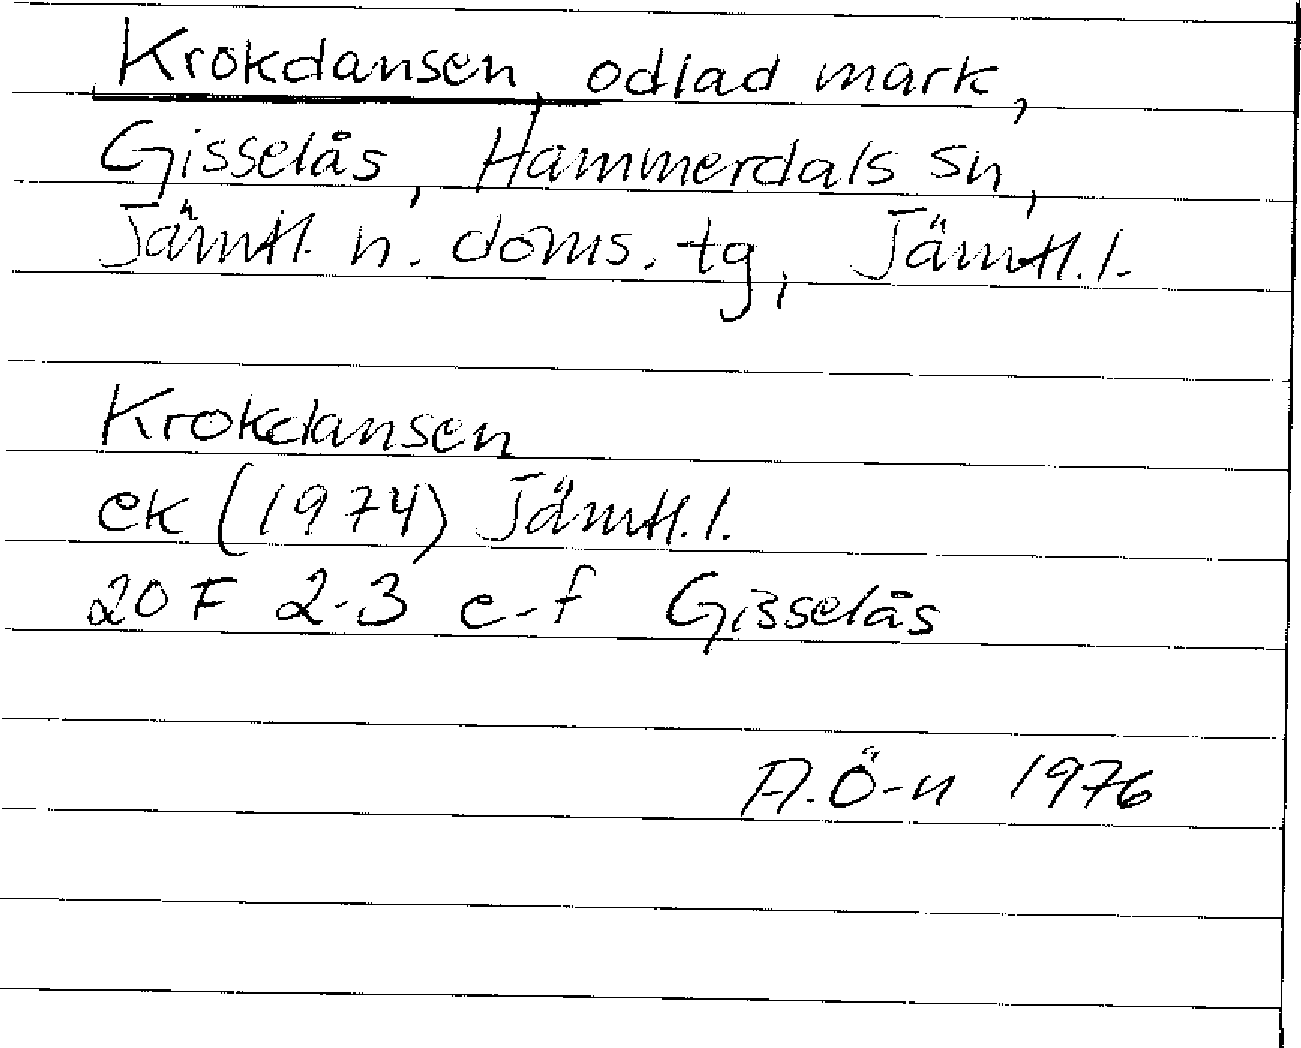 Krokdansen, odlad mark,
Gisselås, Hammerdals sn,
Jämtl. n. doms. tg, Jämtl. l.
Krokdansen
ek (1974) Jämtl. l.
20 F 2-3 e-f Gisselås
A.Ö-n 1976